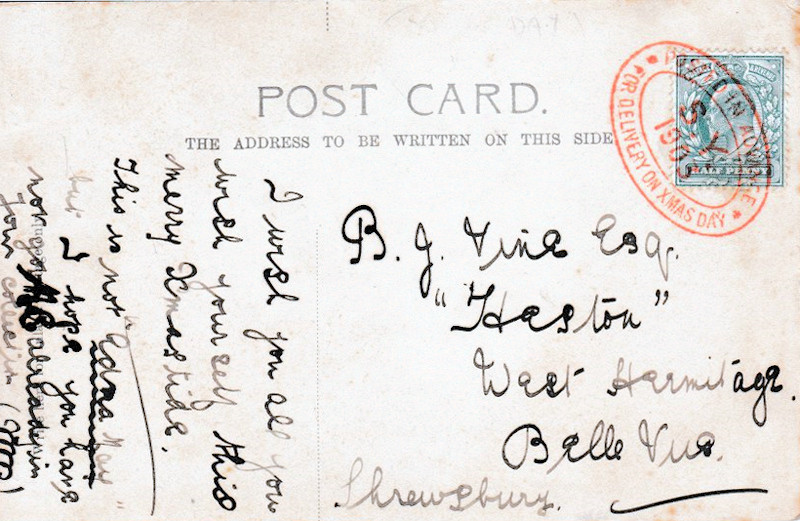 POST CARD.
THE ADDRESS TO BE WRITTEN ON THIS SIDE
POSTED IN ADVANCE
FOR DELIVERY ON XMAS DAY
HALF PENNY
B. J. Vine Esq.
"Heston"
West Hermitage.
Belle Vue.
Shrewsbury.
I wish you all you
wish yourself this
merry Xmas tide.
This is not "Edna May"
but
I hope you have
not got already in
your collectin